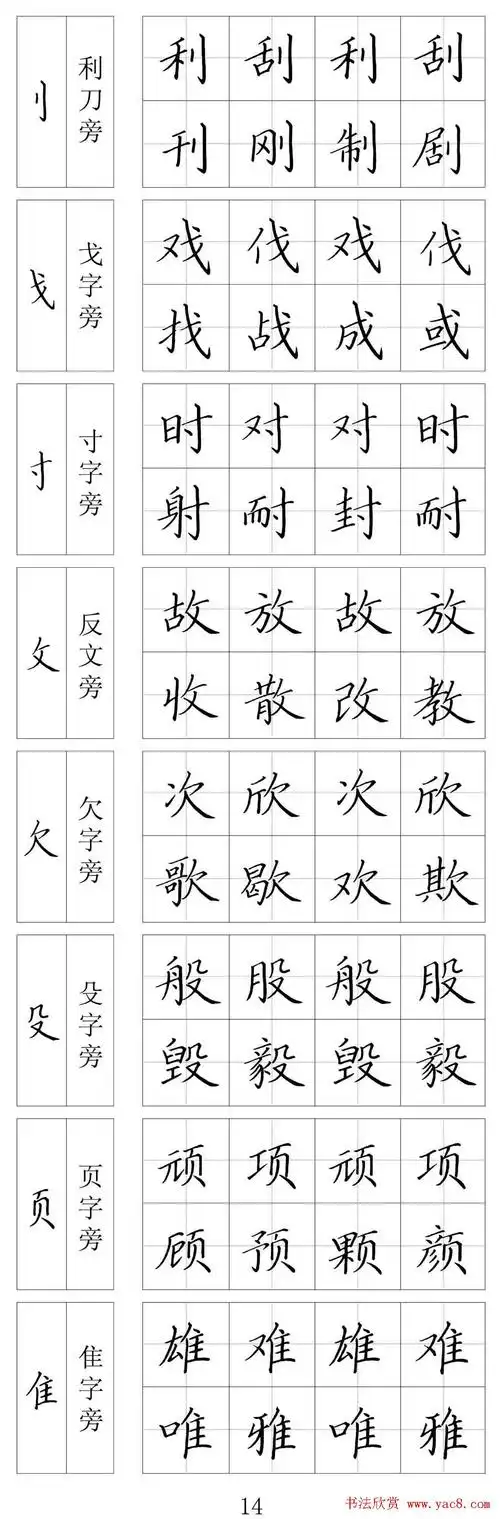 刂 利刀旁 利 刮 利 刮
刊 刚 制 剧
戈 戈字旁 戏 伐 戏 伐
找 战 成 或
寸 寸字旁 时 对 对 时
射 耐 封 耐
攵 反文旁 故 放 故 放
收 散 改 教
欠 欠字旁 次 欣 次 欣
歌 歇 欢 欺
殳 殳字旁 般 股 般 股
毁 毅 毁 毅
页 页字旁 顽 项 顽 项
顾 预 颗 颜
隹 隹字旁 雄 难 雄 难
唯 雅 唯 雅
14
书法欣赏 www.yac8.com